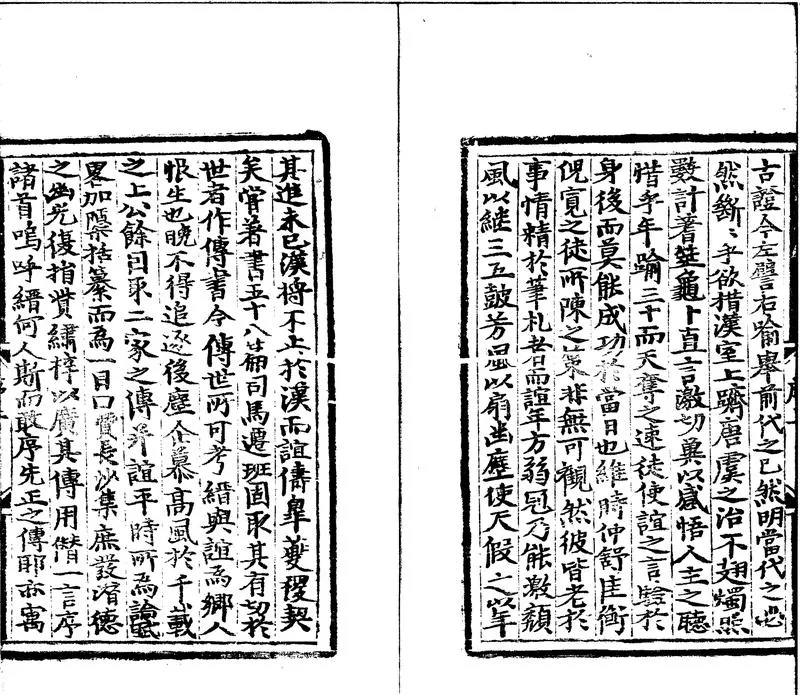 古證今左譬右喻舉前代之已然明當代之必
然斷斷乎欲措漢室上躋唐虞之治不翅燭照
數計蓍筮龜卜直言激切冀以感悟人主之聽
惜乎年踰三十而天奪之速徒使誼之言驗於
身後而莫能成功於當日也維時仲舒匡衡
倪寬之徒所陳之策非無可觀然彼皆老於
事情精於筆札者而誼年方弱冠乃能激頹
風以繼三五鼓芳風以扇幽塵使天假之以年
其進未已漢將不止於漢而誼儔皐夔稷契
矣嘗著書五十八篇司馬遷班固取其有切於
世者作傳書今傳世所可考縉與誼為鄉人
恨生也晚不得追逐後塵企慕高風於千載
之上公餘因取二家之傳并誼平時所為論賦
畧加檃括纂而為一目曰賈長沙集庶發潛德
之幽光復指貲繡梓以廣其傳用僭一言序
諸首嗚呼縉何人斯而敢序先正之傳耶亦寓